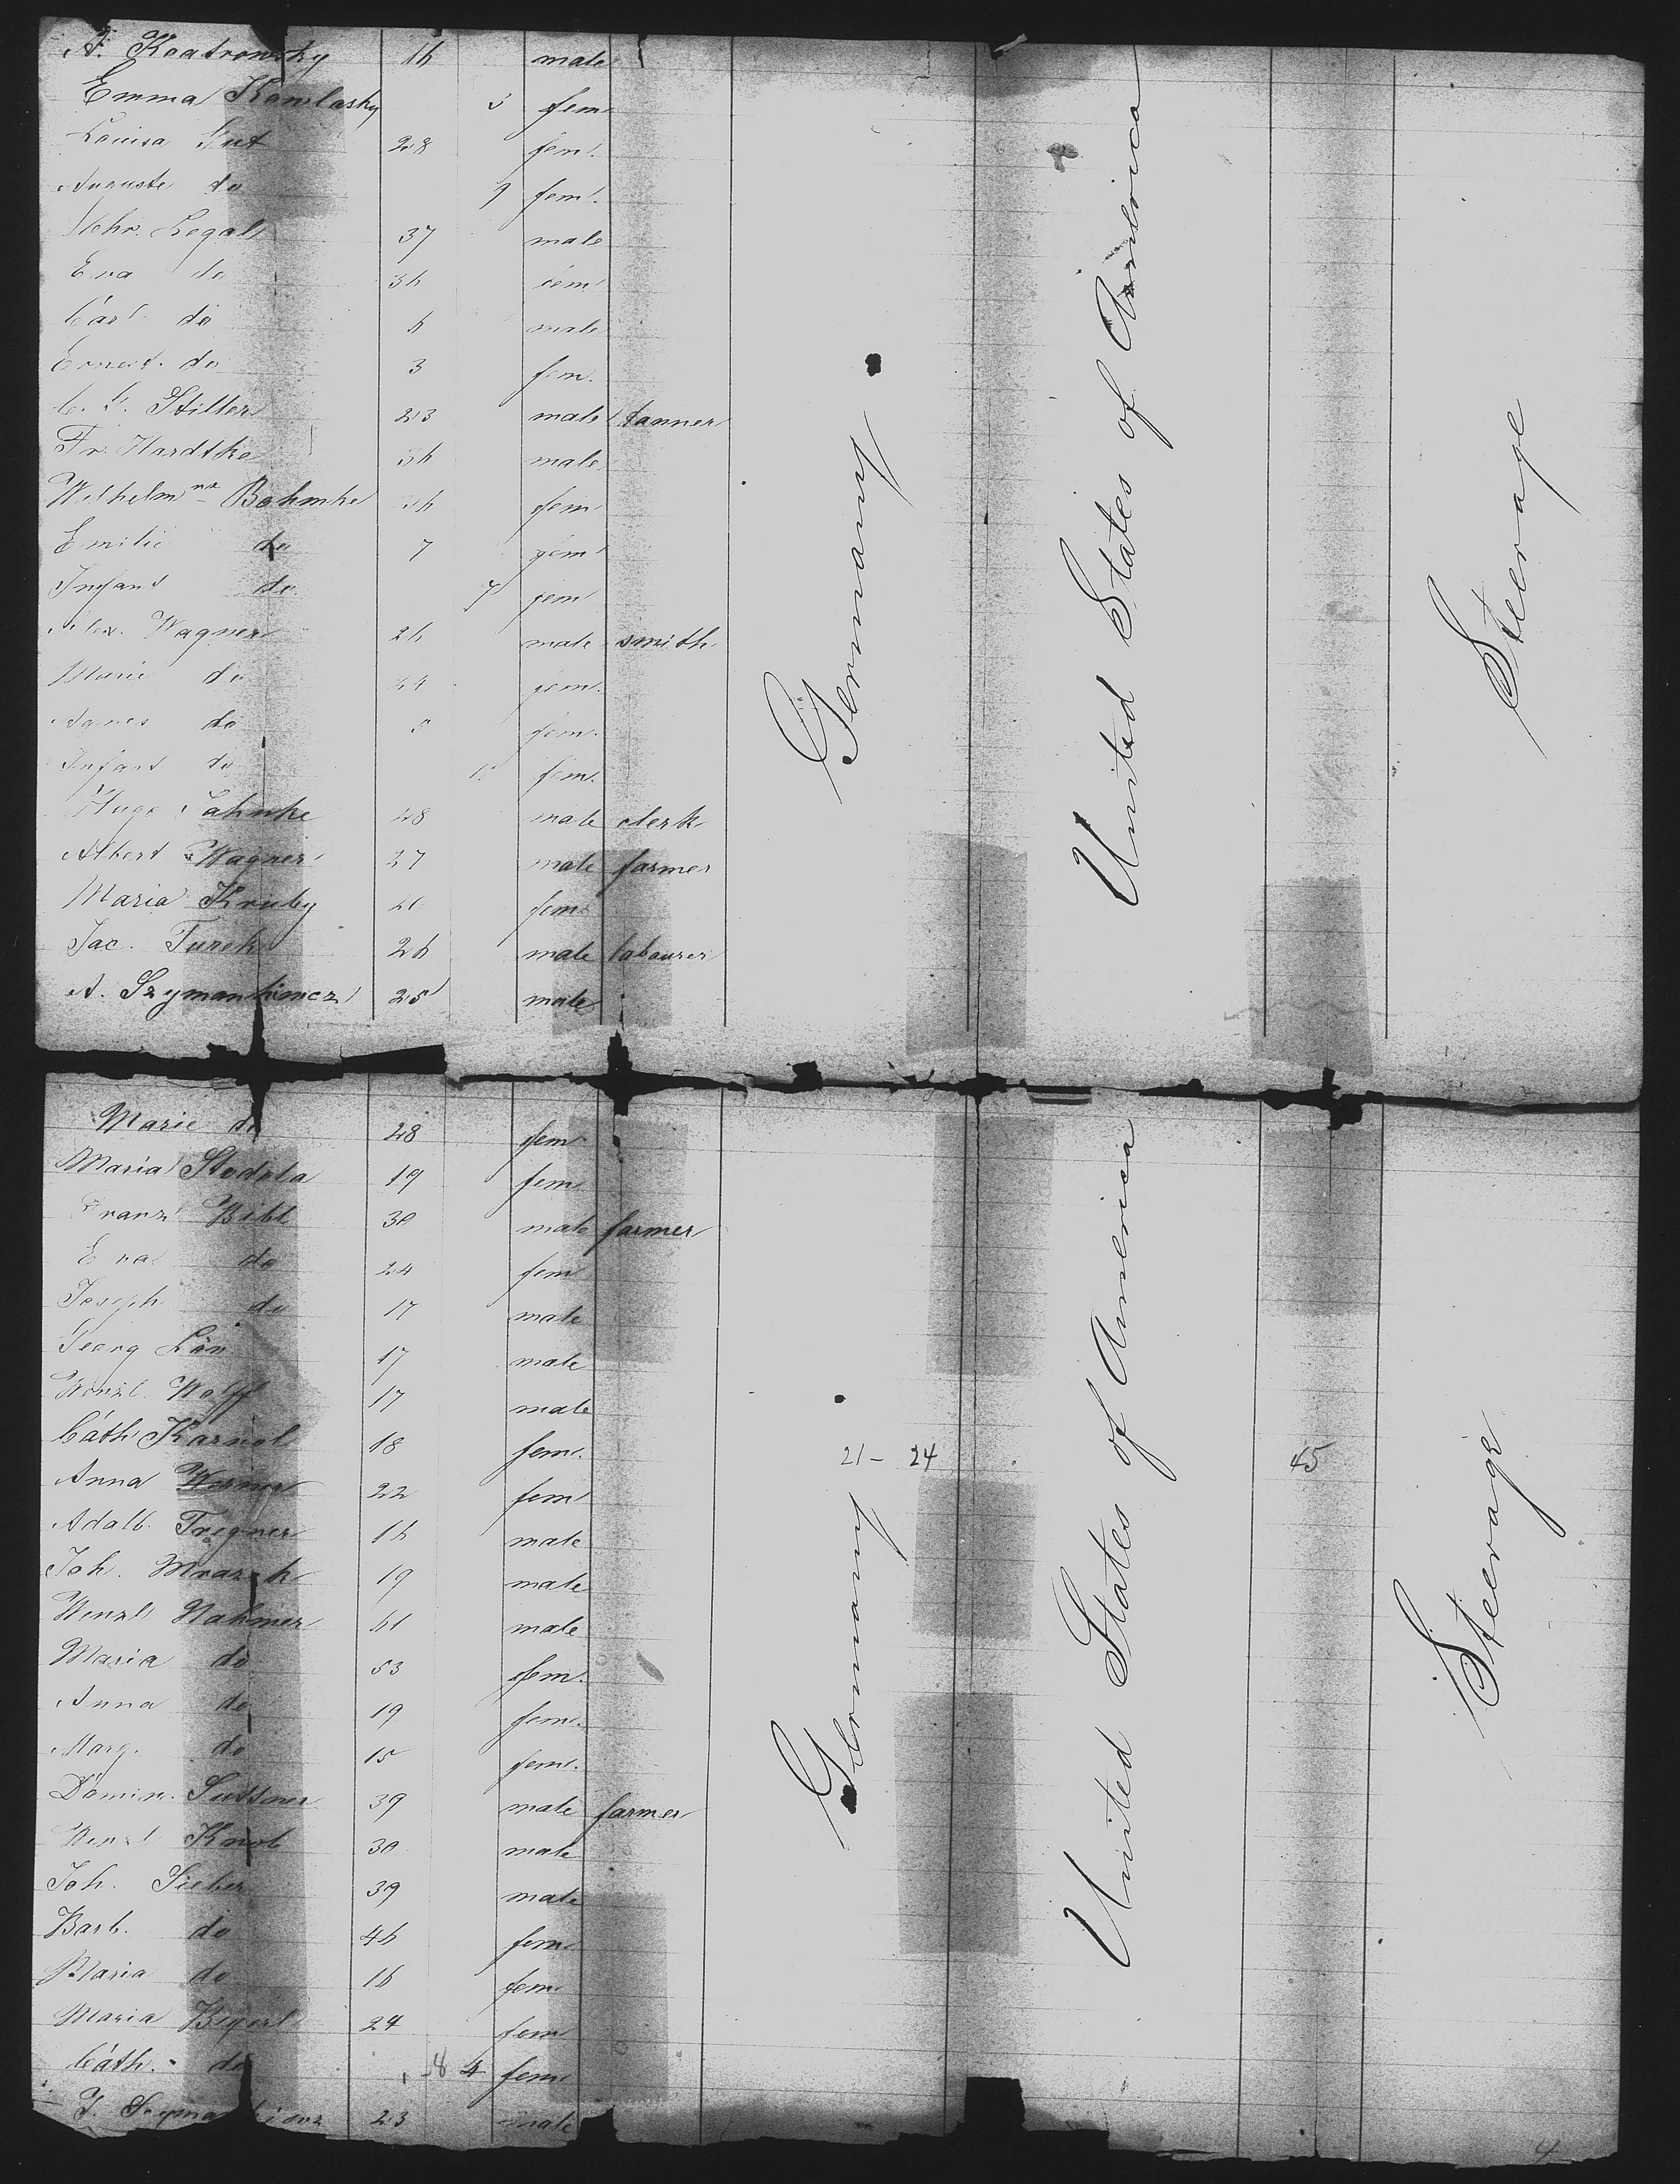 A. Koatronsky 16 male
Emma Kamlasky 3 fem
Louisa Gut 28 fem.
Auguste do 9 fem.
Chr. Legal 37 male
Eva do 36 fem
Carl do 6 male
Ernest. do 3 fem.
C. Stiller 23 male tanner
Fr. Hardtke 36 male
Wilhelm ne Bohmke 36 fem
Emilie do 7 fem
Infant do 7 fem
Alex. Wagner 26 male smith
Marie do 24 fem.
Agnes do 5 fem.
Infant do fem.
Hugo Jahnke 48 male clerk
Albert Wagner 27 male farmer
Maria Kruby fem
Jac. Turek 26 male labourer
A. Szymankiewcz 25 male
Germany
United States of America
Steerage
Marie do 28 fem
Maria Stodola 19 fem
Franz Bibl 30 male farmer
Eva do 24 fem
Joseph do 17 male
Georg Lön 17 male
Wenzl. Wolff 17 male
Cath Karnol 18 fem.
Anna Werner 22 fem
Adalb. Tregner 16 male
Joh. Mrazek 19 male
Wenzl Nahmer 61 male
Maria do 53 fem.
Anna do 19 fem.
Marg. do 15 fem.
Domin. Suttner 39 male farmer
Wenzl Knob 30 male
Joh. Sieber 39 male
Barb. do 46 fem
Maria do 16 fem
Maria Bigerl 24 fem
Cath. do 4 fem
23 male
Germany
21 - 24
United States of America
45
Steerage
4